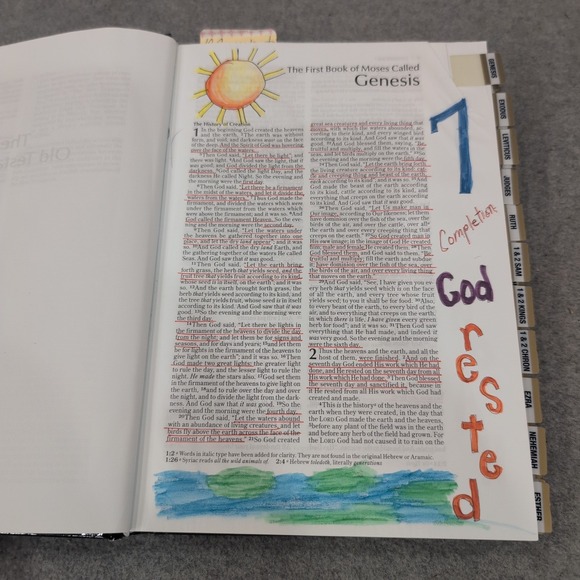 The First Book of Moses Called
Genesis
The History of Creation
1 In the beginning God created the heavens
and the earth. 2The earth was without
form, and void; and darkness was on the face
of the deep. And the Spirit of God was hovering
over the face of the waters.
3Then God said, "Let there be light"; and
there was light. 4And God saw the light, that it
was good; and God divided the light from the
darkness. 5God called the light Day, and the
darkness He called Night. So the evening and
the morning were the first day.
6Then God said, "Let there be a firmament
in the midst of the waters, and let it divide the
waters from the waters." 7Thus God made the
firmament, and divided the waters which were
under the firmament from the waters which
were above the firmament; and it was so. 8And
God called the firmament Heaven. So the eve-
ning and the morning were the second day.
9Then God said, "Let the waters under
the heavens be gathered together into one
place, and let the dry land appear"; and it was
so. 10And God called the dry land Earth, and
the gathering together of the waters He called
Seas. And God saw that it was good.
11Then God said, "Let the earth bring
forth grass, the herb that yields seed, and the
fruit tree that yields fruit according to its kind,
whose seed is in itself, on the earth"; and it was
so. 12And the earth brought forth grass, the
herb that yields seed according to its kind, and
the tree that yields fruit, whose seed is in itself
according to its kind. And God saw that it was
good. 13So the evening and the morning were
the third day.
14Then God said, "Let there be lights in the
firmament of the heavens to divide the day
from the night; and let them be for signs and
seasons, and for days and years; 15and let them
be for lights in the firmament of the heavens to
give light on the earth"; and it was so. 16Then
God made two great lights: the greater light
to rule the day, and the lesser light to rule the
night. He made the stars also. 17God set them
in the firmament of the heavens to give light on
the earth, 18and to rule over the day and over
the night, and to divide the light from the dark-
ness. And God saw that it was good. 19So the
evening and the morning were the fourth day.
20Then God said, "Let the waters abound
with an abundance of living creatures, and let
birds fly above the earth across the face of the
firmament of the heavens." 21So God created
great sea creatures and every living thing that
moves, with which the waters abounded, ac-
cording to their kind, and every winged bird
according to its kind. And God saw that it was
good. 22And God blessed them, saying, "Be
fruitful and multiply, and fill the waters in the
seas, and let birds multiply on the earth." 23So
the evening and the morning were the fifth day.
24Then God said, "Let the earth bring forth
the living creature according to its kind: cat-
tle and creeping thing and beast of the earth,
each according to its kind"; and it was so. 25And
God made the beast of the earth according
to its kind, cattle according to its kind, and
everything that creeps on the earth according
to its kind. And God saw that it was good.
26Then God said, "Let Us make man in
Our image, according to Our likeness; let them
have dominion over the fish of the sea, over
the birds of the air, and over the cattle, over all
the earth and over every creeping thing that
creeps on the earth." 27So God created man in
His own image; in the image of God He created
him; male and female He created them. 28Then
God blessed them, and God said to them, "Be
fruitful and multiply; fill the earth and subdue
it; have dominion over the fish of the sea, over
the birds of the air, and over every living thing
that moves on the earth."
29And God said, "See, I have given you ev-
ery herb that yields seed which is on the face
of all the earth, and every tree whose fruit
yields seed; to you it shall be for food. 30Also,
to every beast of the earth, to every bird of the
air, and to everything that creeps on the earth,
in which there is life, I have given every green
herb for food"; and it was so. 31Then God saw
everything that He had made, and indeed it
was very good. So the evening and the morning
were the sixth day.
2 Thus the heavens and the earth, and all the
host of them, were finished. 2And on the
seventh day God ended His work which He had
done, and He rested on the seventh day from all
His work which He had done. 3Then God blessed
the seventh day and sanctified it, because in
it He rested from all His work which God had
created and made.
4This is the history of the heavens and the
earth when they were created, in the day that
the LORD God made the earth and the heavens,
5before any plant of the field was in the earth
and before any herb of the field had grown. For
the LORD God had not caused it to rain on the
1:2 • Words in italic type have been added for clarity. They are not found in the original Hebrew or Aramaic.
1:26 • Syriac reads all the wild animals of. 2:4 • Hebrew toledoth, literally generations
7
Completion
God
rested
GENESIS
EXODUS
LEVITICUS
JUDGES
RUTH
1 & 2 SAM
1 & 2 KINGS
1 & 2 CHRON
EZRA
NEHEMIAH
ESTHER